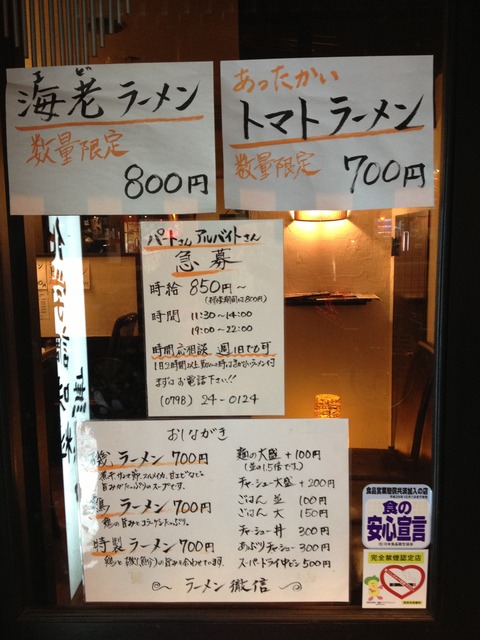 えび
海老ラーメン
数量限定
800円
あったかい
トマトラーメン
数量限定
700円
パートさん アルバイトさん
急募
時給 850円〜
時間 11:30〜14:00
19:00〜22:00
時間応相談 週1日でも可
まずは お電話下さい!!
(0798) 24-0124
おしながき
磯ラーメン 700円
鶏ラーメン 700円
鶏の旨みとコラーゲンたっぷり。
特製ラーメン 700円
ラーメン 微信
麺の大盛 +100円
(並の1.5倍です)
チャーシュー大盛 +200円
ごはん 並 100円
ごはん 大 150円
チャーシュー丼 300円
あぶりチャーシュー 300円
スーパードライ中びん 500円
食品営業賠償共済加入の店
食の
安心宣言
完全禁煙認定店